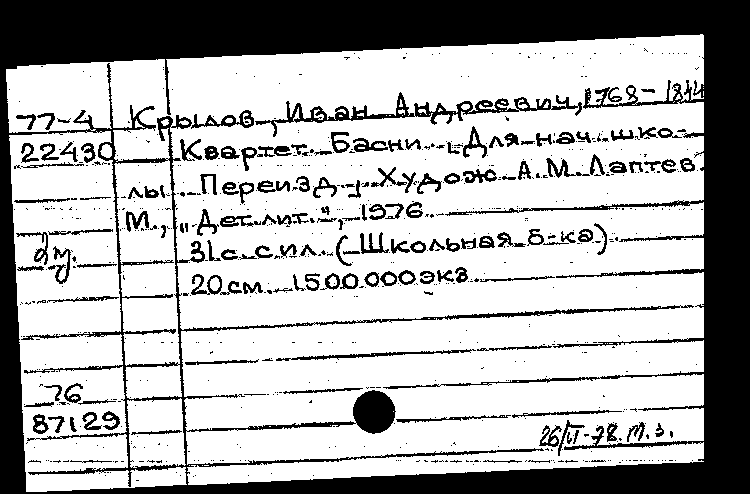 77-4 Крылов, Иван Андреевич, 1768-1844
22430 Квартет. Басни. [Для нач. шко-
лы. Переизд.]. Худож. А.М. Лаптев.
М., "Дет. лит.", 1976.
31 с. с ил. (Школьная б-ка).
20 см. 1 500 000 экз.
76
87129
26/VI-78. М.З.